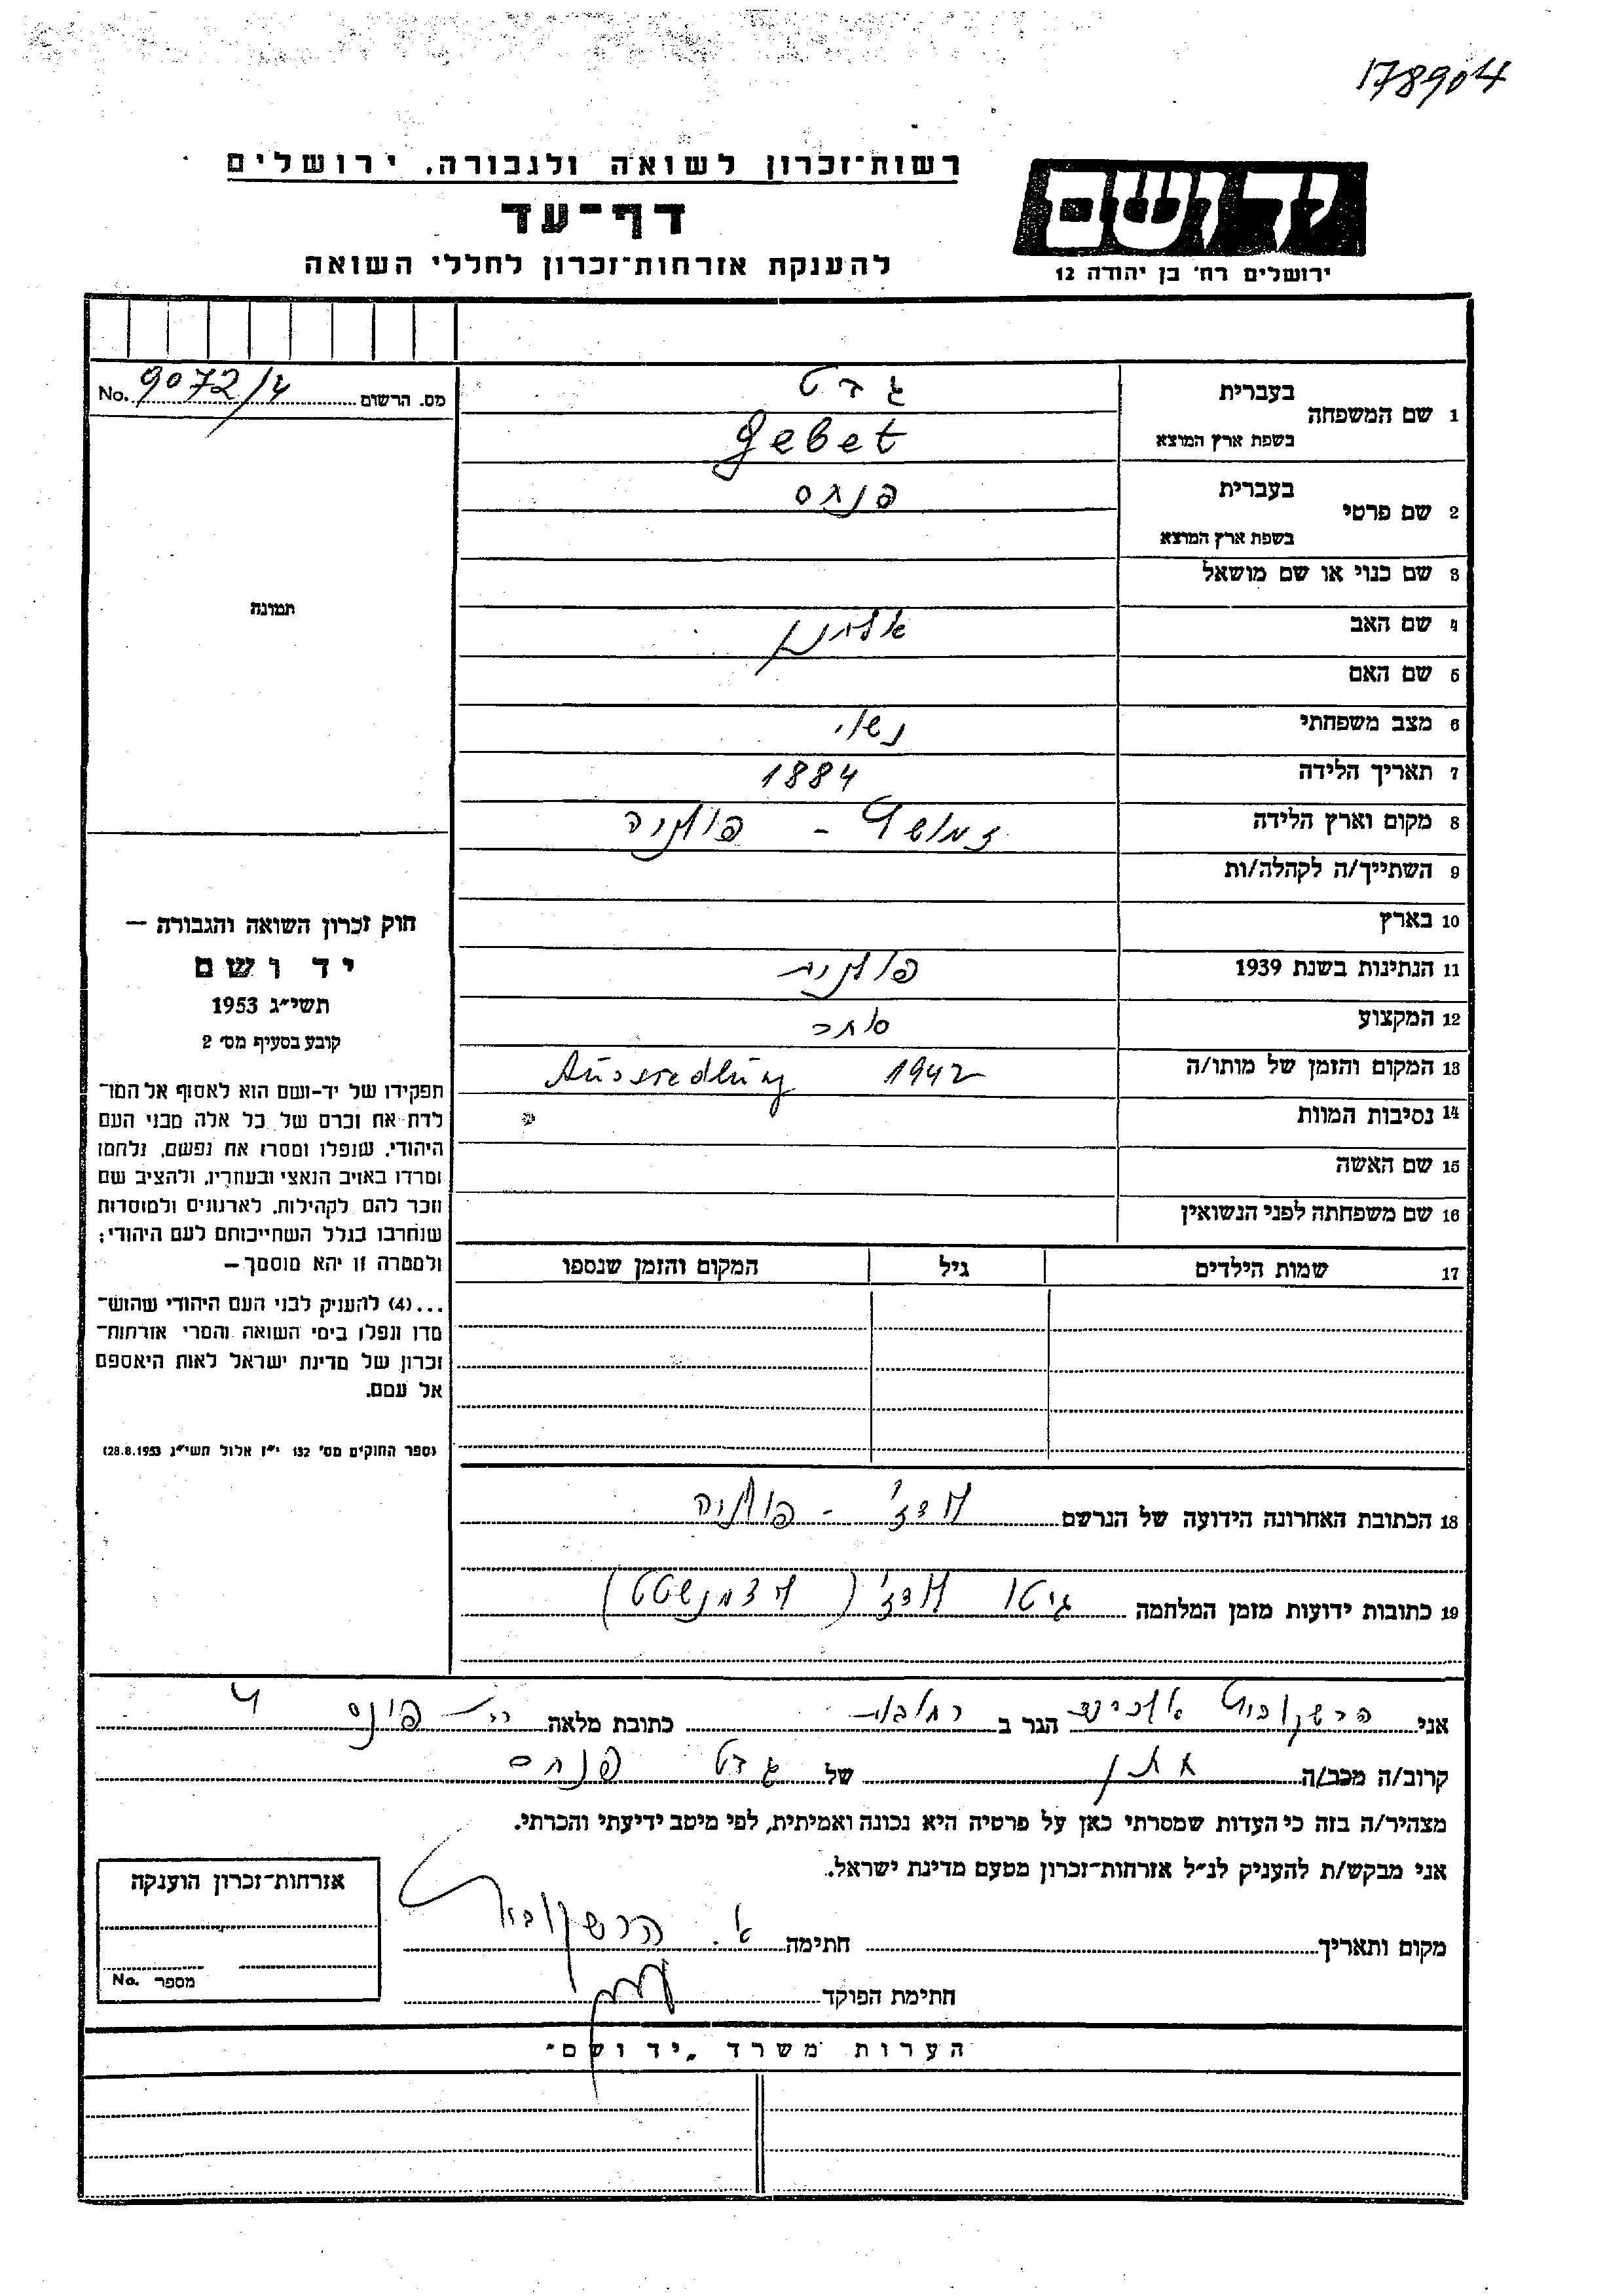 178904
רשות־זכרון לשואה ולגבורה, ירושלים
ידושם
דף־עד
ירושלים רח׳ בן יהודה 12
להענקת אזרחות־זכרון לחללי השואה
מס. הרשום 9072/4 No.
1 שם המשפחה
בעברית גבט
בשפת ארץ המוצא Gebet
2 שם פרטי
בעברית פנחס
בשפת ארץ המוצא
3 שם כנוי או שם מושאל
תמונה
4 שם האב אלחנן
5 שם האם
6 מצב משפחתי נשוי
7 תאריך הלידה 1884
8 מקום וארץ הלידה זמושץ - פולניה
9 השתייך/ה לקהלה/ות
10 בארץ
11 הנתינות בשנת 1939 פולנית
12 המקצוע סוחר
13 המקום והזמן של מותו/ה 1942 Aussiedlung
14 נסיבות המוות
15 שם האשה
16 שם משפחתה לפני הנשואין
17 שמות הילדים גיל המקום והזמן שנספו
חוק זכרון השואה והגבורה —
יד ושם
תשי״ג 1953
קובע בסעיף מס׳ 2
תפקידו של יד-ושם הוא לאסוף אל המו־
לדת את זכרם של כל אלה מבני העם
היהודי, שנפלו ומסרו את נפשם, נלחמו
ומרדו באויב הנאצי ובעוזריו, ולהציב שם
וזכר להם לקהילות, לארגונים ולמוסדות
שנחרבו בגלל השתייכותם לעם היהודי;
ולמטרה זו יהא מוסמך —
...(4) להעניק לבני העם היהודי שהוש־
מדו ונפלו בימי השואה והמרי אזרחות־
זכרון של מדינת ישראל לאות היאספם
אל עמם.
(ספר החוקים מס׳ 132 י״ז אלול תשי״ג 28.8.1953)
18 הכתובת האחרונה הידועה של הנרשם לודז׳ - פולניה
19 כתובות ידועות מזמן המלחמה גיטו לודז׳ (ליצמנשטט)
אני הרשקוביץ הגר ב כתובת מלאה רח׳ פינס 4
קרוב/ה מכב/ה חתן של גבט פנחס
מצהיר/ה בזה כי העדות שמסרתי כאן על פרטיה היא נכונה ואמיתית, לפי מיטב ידיעתי והכרתי.
אני מבקש/ת להעניק לנ״ל אזרחות־זכרון מטעם מדינת ישראל.
מקום ותאריך חתימה א. הרשקוביץ
חתימת הפוקד
אזרחות־זכרון הוענקה
מספר No.
הערות משרד „יד ושם״